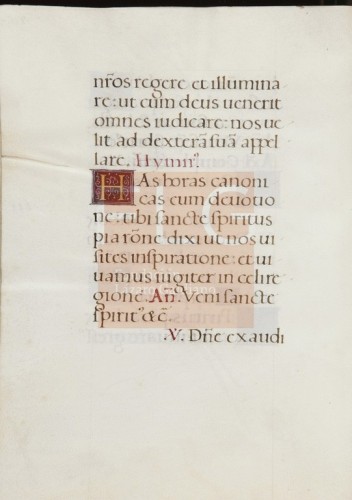 nr̄os regere et illumina
re: ut cum deus uenerit
omnes iudicare: nos ue
lit ad dexterā suā appel
lare. Hymn⁹.
HAs horas canoni
cas cum deuotio
ne: tibi sancte spiritus
pia rōne dixi ut nos ui
sites inspiratione: et ui
uamus iugiter in celi re
gione. An̄. Veni sancte
spirit⁹ &c̄.
.V. Dn̄e exaudi